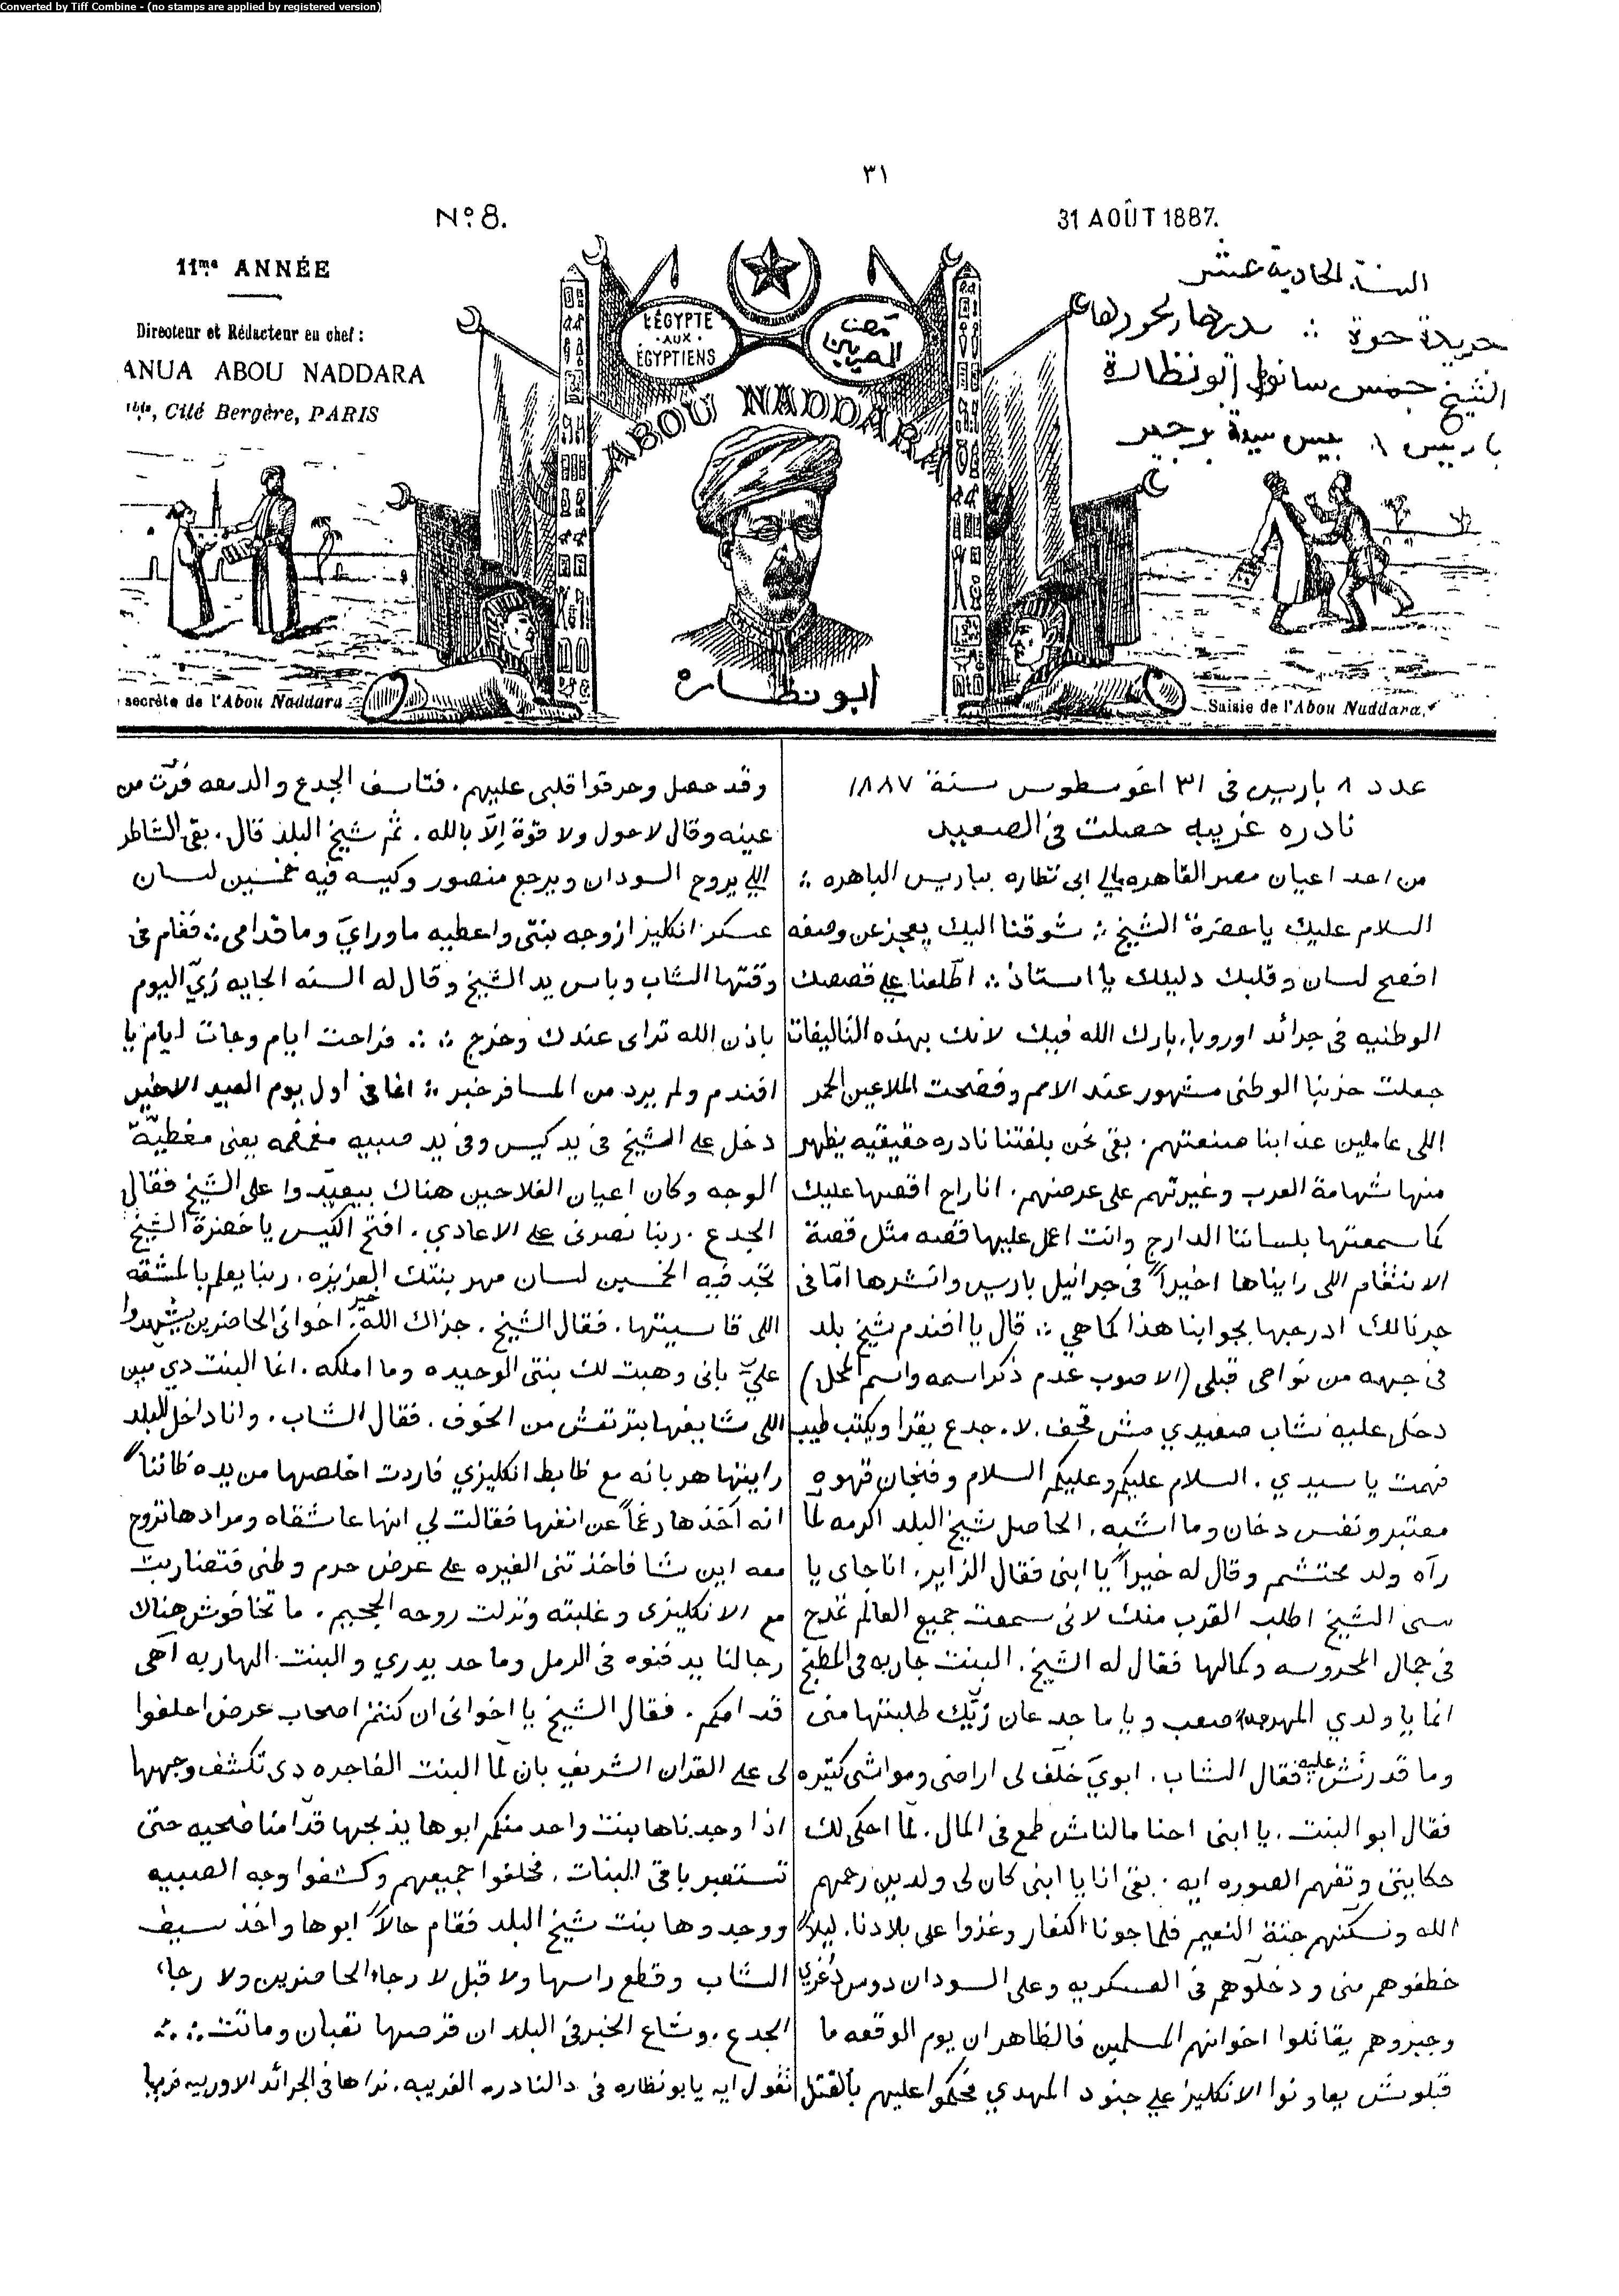 Converted by Tiff Combine - (no stamps are applied by registered version)
٣١
No. 8.
31 AOÛT 1887.
11me ANNÉE
Directeur et Rédacteur en chef :
ANUA ABOU NADDARA
Cité Bergère, PARIS
السنة الحادية عشر
جريدة حرة ∴ مديرها ومحررها
الشيخ جمس سانوا ابو نظارة
باريس ٦ بيس سيتة برجير
L'ÉGYPTE
AUX
ÉGYPTIENS
مصر
للمصريين
ABOU NADDARA
ابو نظاره
secrète de l'Abou Naddara
Saisie de l'Abou Naddara.
عدد ٨ باريس فى ٣١ اغوسطوس سنة ١٨٨٧
نادره غريبه حصلت فى الصعيد
من احد اعيان مصر القاهره الى ابى نظاره بباريس الباهره ∴
السلام عليك يا حضرة الشيخ ∴ شوقنا اليك يعجز عن وصفه
افصح لسان وقلبك دليلك يا استاذ ∴ اطلعنا على قصصك
الوطنيه فى جرائد اوروبا. بارك الله فيك لانك بهذه التاليفات
جعلت حزبنا الوطنى مشهور عند الامم وفضحت الملاعين الحمر
اللى عاملين عذابنا صنعتهم. بقى نحن بلغتنا نادره حقيقيه يظهر
منها شهامة العرب وغيرتهم على عرضهم. انا راح اقصها عليك
كما سمعتها بلساننا الدارج وانت اعمل عليها قصه مثل قصة
الانتقام اللى رايناها اخيراً فى جرانيل باريس وانشرها امّا فى
جرنالك ادرجها بجوابنا هذا كما هي ∴ قال يا افندم شيخ بلد
فى جهه من نواحى قبلى (الاصوب عدم ذكر اسمه واسم المحل)
دخل عليه شاب صعيدي مش قحف. لا. جدع يقرا ويكتب طيب
فهمت يا سيدي. السلام عليكم وعليكم السلام وفنجان قهوه
معتبر ونفس دخان وما اشبه. الحاصل شيخ البلد اكرمه لمّا
رآه ولد محتشم وقال له خيراً يا ابنى فقال الزاير. انا جاى يا
سى الشيخ اطلب القرب منك لانى سمعت جميع العالم تمدح
فى جمال المحروسه وكمالها فقال له الشيخ. البنت جاريه فى المطبخ
انما يا ولدي المهر صعب ويا ما جدعان زيّك طلبتها منى
وما قدرتش عليه فقال الشاب. ابويَ خلّف لى اراضى ومواشى كتيره
فقال ابو البنت. يا ابنى احنا مالناش طمع فى المال. لمّا احكى لك
حكايتى وتفهم الصوره ايه. بقى انا يا ابنى كان لى ولدين رحمهم
الله ونسكّنهم جنة النعيم فلما جونا الكفار وغزوا على بلادنا. ليلاً
خطفوهم منى ودخلّوهم فى العسكريه وعلى السودان دوس دُغري
وجبروهم يقاتلوا اخوانهم المسلمين فالظاهر ان يوم الوقعه ما
قبلوش يعاونوا الانكليز على جنود المهدي فحكموا عليهم بالقتل
وقد حصل وحرقوا قلبى عليهم. فتاسف الجدع والدمعه فرّت من
عينه وقال لا حول ولا قوة الّا بالله. ثم شيخ البلد قال. بقى الشاطر
اللي يروح السودان ويرجع منصور وكيسه فيه خمسين لسان
عسكر انكليز ازوجه بنتى واعطيه ما ورايَ وما قدامى ∴ فقام فى
وقتها الشاب وباس يد الشيخ وقال له السنه الجايه زيّ اليوم
باذن الله ترانى عندك وخرج ∴ ∴ فراحت ايام وجات ايام يا
افندم ولم يرد من المسافر خبر ∴ انما فى اول يوم العيد الاخير
دخل على الشيخ فى يد كيس وفى يد صبيه مغمغمه يعنى مغطيّة
الوجه وكان اعيان الفلاحين هناك بيعيّدوا على الشيخ فقال
الجدع. ربنا نصرنى على الاعادي. افتح الكيس يا حضرة الشيخ
تجد فيه الخمسين لسان مهر بنتك العزيزه. ربنا يعلم بالمشقه
اللى قاسيتها. فقال الشيخ. جزاك الله خير. اخوانى الحاضرين يشهدوا
عليّ بانى وهبت لك بنتى الوحيده وما املكه. انما البنت دي مين
اللى شايفها بترتعش من الخوف. فقال الشاب. وانا داخل للبلد
رايتها هربانه مع ظابط انكليزي فاردت اخلصها من يده ظاناً
انه اخذها رغماً عن انفها فقالت لي انها عاشقاه ومرادها تروح
معه اين شا فاخذتنى الغيره على عرض حرم وطنى فتضاربت
مع الانكليزى وغلبته ونزلت روحه الجحيم. ما تخافوش هناك
رجالنا يدفنوه فى الرمل وما حد يدري والبنت الهاربه آهى
قدامكم. فقال الشيخ يا اخوانى ان كنتم اصحاب عرض احلفوا
لى على القران الشريف بان لمّا البنت الفاجره دى تكشف وجهها
اذا وجدناها بنت واحد منكم ابوها يذبحها قدّامنا ضحيه حتى
تستعبر باقى البنات. فحلفوا جميعهم وكشفوا وجه الصبيه
ووجدوها بنت شيخ البلد فقام حالاً ابوها واخذ سيف
الشاب وقطع راسها ولا قبل لا رجاء الحاضرين ولا رجاء
الجدع. وشاع الخبر فى البلد ان قرصها تعبان وماتت ∴ ∴
تقول ايه يابو نظاره فى دالنادره الغريبه. نراها فى الجرائد الاوربيه قريباً